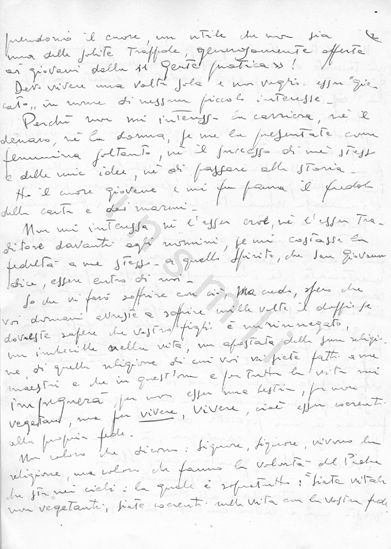 prendono il cuore, un utile che non sia
una delle solite trappole, generosamente offerte
ai giovani dalla «gente pratica»!
Devo vivere una volta sola e non voglio esser "gio-
cato" in nome di nessun piccolo interesse.
Perché non mi interessa la carriera, né il
denaro, né la donna, se me la presentate come
femmina soltanto, né il successo di me stesso
e delle mie idee, né di passare alla storia.
Ho il cuore giovane e mi fa paura il freddo
della carta e dei marmi.
Non mi interessa né l'esser eroe, né l'esser tra-
ditore davanti agli uomini, se mi costasse la
fedeltà a me stesso a quello Spirito, che San Giovanni
dice, essere entro di noi.
So che vi farò soffrire con ciò, ma credo, spero che
voi domani avreste a soffrire mille volte il doppio se
doveste sapere che vostro figlio è un rinnegato,
un imbecille nella vita, un apostata della sua religio-
ne, di quella religione di cui voi vi siete fatti a me
maestri e che in quest'ora e per tutta la vita mi
impegnerà, per non esser una bestia, per non
vegetare, ma per vivere, vivere, cioè esser coerenti
alla propria fede.
Non coloro che dicono: Signore, Signore, vivono la
religione, ma coloro che fanno la volontà del Padre
che sta nei cieli: la quale è soprattutto: "Siate vitali
non vegetanti, siate coerenti nella vita con la vostra fede
insmli